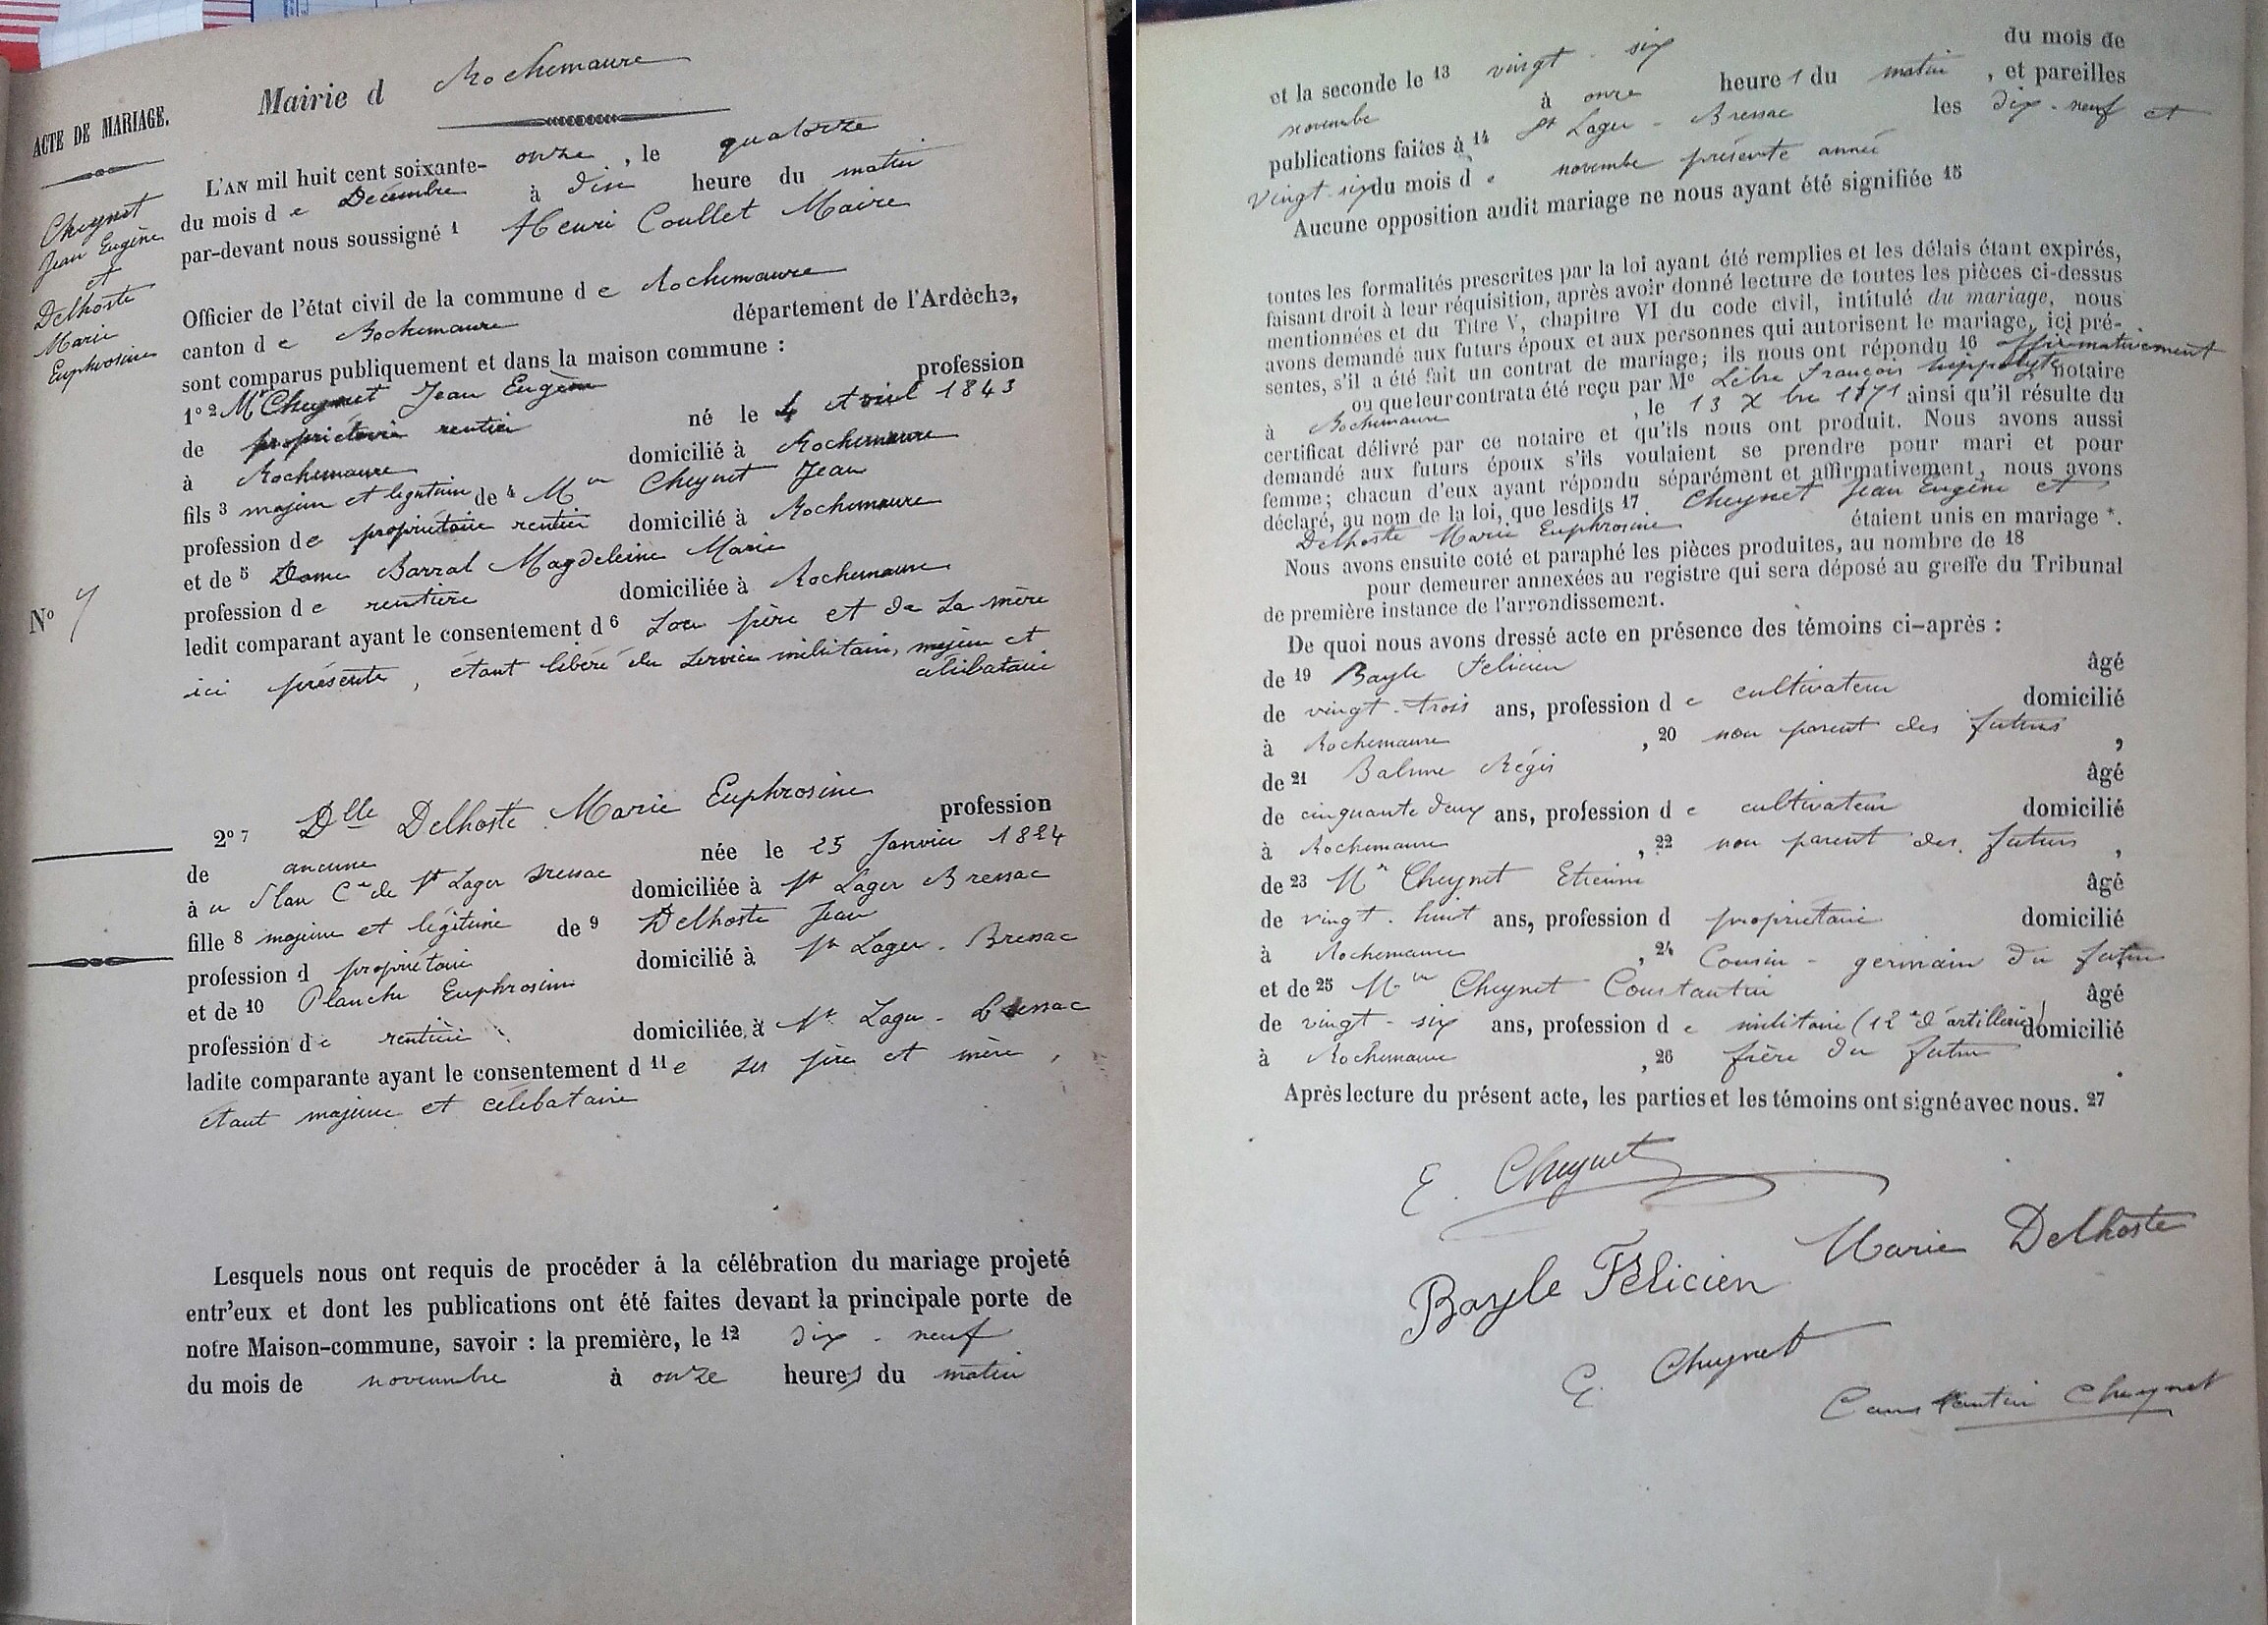 Mairie d Rochemaure
ACTE DE MARIAGE.
Cheynet
Jean Eugène
et
Delhoste
Marie
Euphrosine
No 7
L'AN mil huit cent soixante- onze , le quatorze
du mois d e Décembre à dix heure du matin
par-devant nous soussigné 1 Henri Coullet Maire
Officier de l'état civil de la commune d e Rochemaure
canton d e Rochemaure département de l'Ardèche,
sont comparus publiquement et dans la maison commune :
1º 2 Mr Cheynet Jean Eugène profession
de propriétaire rentier né le 4 Avril 1843
à Rochemaure domicilié à Rochemaure
fils 3 majeur et légitime de 4 Mr Cheynet Jean
profession de propriétaire rentier domicilié à Rochemaure
et de 5 Dame Barral Magdeleine Marie
profession d e rentière domiciliée à Rochemaure
ledit comparant ayant le consentement d 6 son père et de sa mère
ici présents, étant libéré du service militaire, majeur et
célibataire
2º 7 Dlle Delhoste Marie Euphrosine profession
de aucune née le 25 Janvier 1824
à u Plan Cne de St Lager Bressac domiciliée à St Lager Bressac
fille 8 majeure et légitime de 9 Delhoste Jean
profession d propriétaire domicilié à St Lager - Bressac
et de 10 Planche Euphrosine
profession d e rentière domiciliée à St Lager - Bressac
ladite comparante ayant le consentement d 11 e ses père et mère ,
étant majeure et célibataire
Lesquels nous ont requis de procéder à la célébration du mariage projeté
entr'eux et dont les publications ont été faites devant la principale porte de
notre Maison-commune, savoir : la première, le 12 dix - neuf
du mois de novembre à onze heures du matin
et la seconde le 13 vingt - six du mois de
novembre à onze heure s du matin , et pareilles
publications faites à 14 St Lager - Bressac les dix - neuf et
vingt-six du mois d e novembre présente année
Aucune opposition audit mariage ne nous ayant été signifiée 15
toutes les formalités prescrites par la loi ayant été remplies et les délais étant expirés,
faisant droit à leur réquisition, après avoir donné lecture de toutes les pièces ci-dessus
mentionnées et du Titre V, chapitre VI du code civil, intitulé du mariage, nous
avons demandé aux futurs époux et aux personnes qui autorisent le mariage, ici pré-
sentes, s'il a été fait un contrat de mariage; ils nous ont répondu 16 affirmativement
ou que leur contrat a été reçu par Me Lèbre François hippolyte notaire
à Rochemaure , le 13 X bre 1871 ainsi qu'il résulte du
certificat délivré par ce notaire et qu'ils nous ont produit. Nous avons aussi
demandé aux futurs époux s'ils voulaient se prendre pour mari et pour
femme; chacun d'eux ayant répondu séparément et affirmativement, nous avons
déclaré, au nom de la loi, que lesdits 17 Cheynet Jean Eugène et
Delhoste Marie Euphrosine étaient unis en mariage *.
Nous avons ensuite coté et paraphé les pièces produites, au nombre de 18
pour demeurer annexées au registre qui sera déposé au greffe du Tribunal
de première instance de l'arrondissement.
De quoi nous avons dressé acte en présence des témoins ci-après :
de 19 Bayle Felicien âgé
de vingt-trois ans, profession d e cultivateur domicilié
à Rochemaure , 20 non parent des futurs ,
de 21 Balme Régis âgé
de cinquante deux ans, profession d e cultivateur domicilié
à Rochemaure , 22 non parent des futurs ,
de 23 Mr Cheynet Etienne âgé
de vingt-huit ans, profession d propriétaire domicilié
à Rochemaure , 24 Cousin - germain du futur
et de 25 Mr Cheynet Constantin âgé
de vingt-six ans, profession d e militaire (12e d'artillerie) domicilié
à Rochemaure , 26 frère du futur .
Après lecture du présent acte, les parties et les témoins ont signé avec nous. 27
E. Cheynet
Marie Delhoste
Bayle Félicien
E. Cheynet
Constantin Cheynet